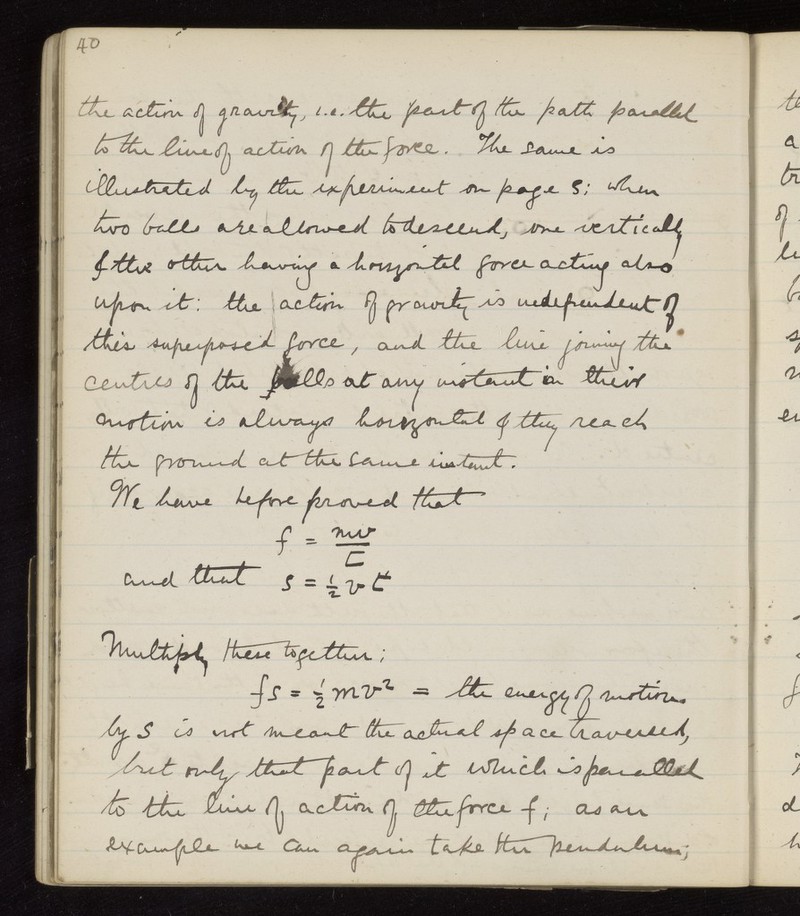 40
the action of gravity, i.e. the part of the path parallel
to the line of action of the force. The same is
illustrated by the experiment on page 5; when
two balls are allowed to descend, one vertically
& the other having a horizontal force acting also
upon it: the action of gravity is independent of
this superposed force, and the line joining the
centres of the balls at any instant in their
motion is always horizontal & they reach
the ground at the same instant.
We have before proved that
f = mv/t
and that s = ½ v t
Multiply these together;
fs = ½ mv² = the energy of motion
by S is not meant the actual space traversed,
but only that part of it which is parallel
to the line of action of the force f; as an
example we can again take the pendulum;